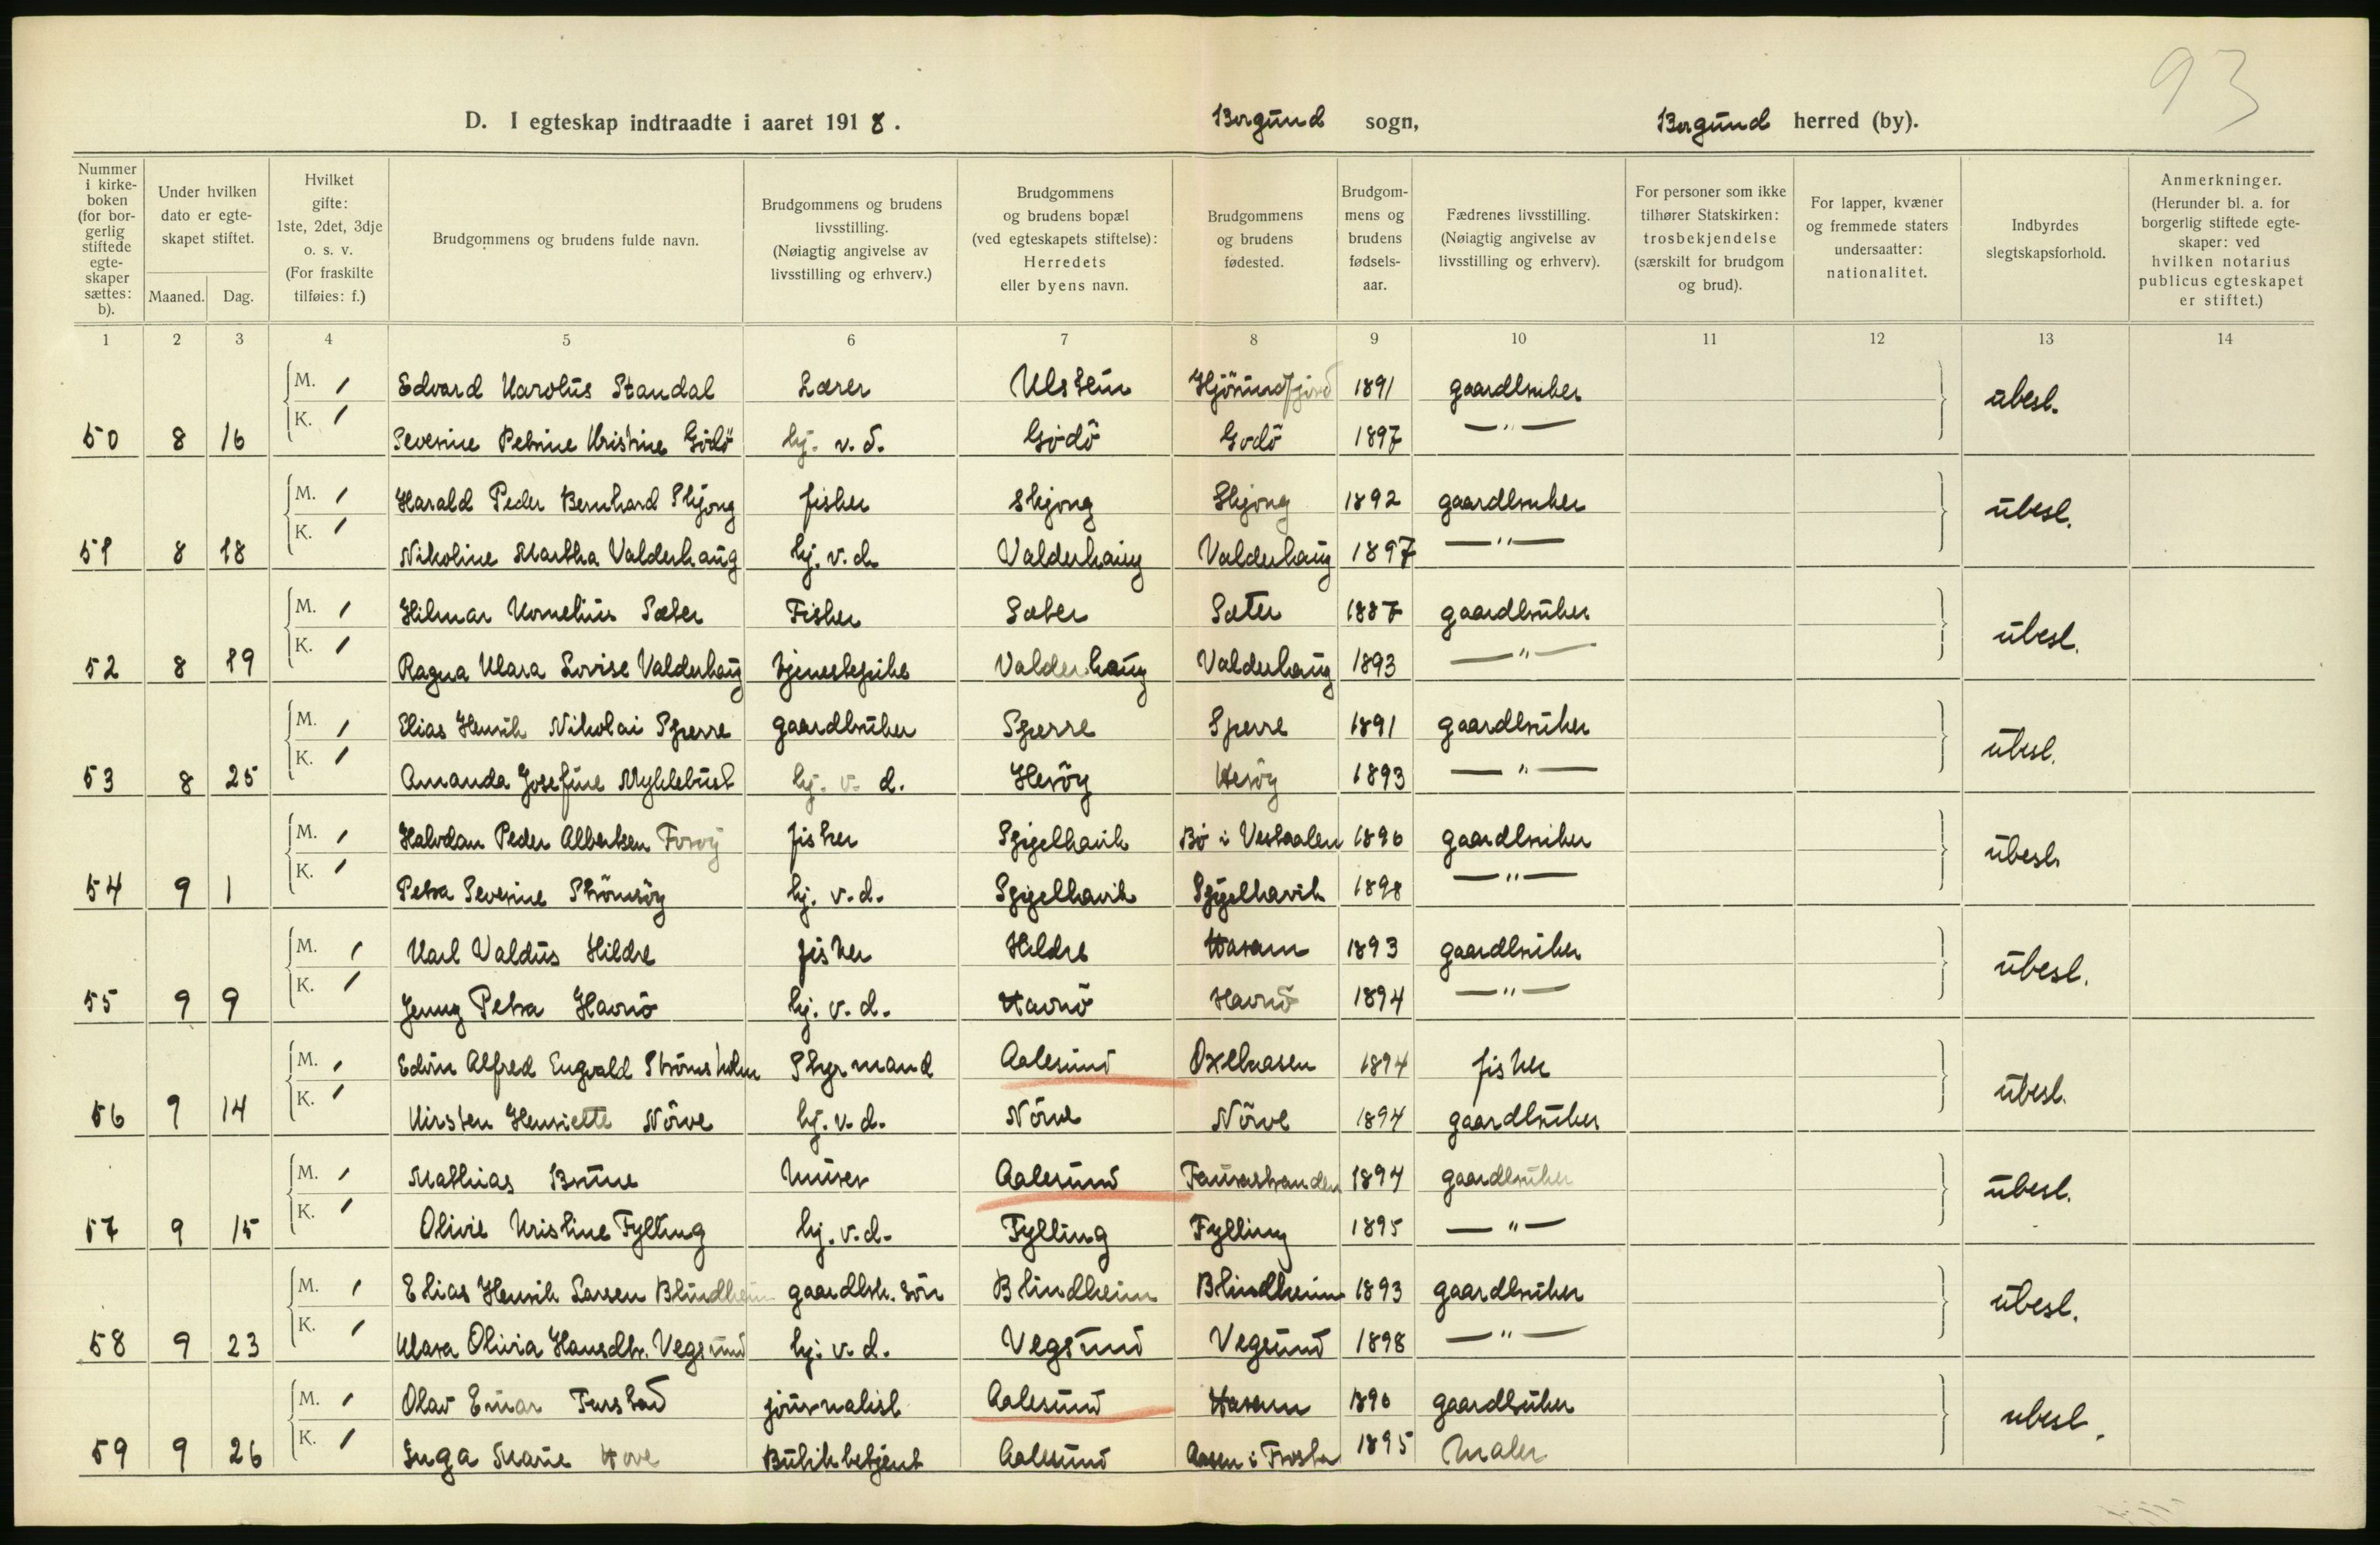 93
D. I egteskap indtraadte i aaret 1918. Borgund sogn, Borgund herred (by).
Nummer i kirkeboken (for borgerlig stiftede egteskaper sættes: b).
Under hvilken dato er egteskapet stiftet.
Maaned. Dag.
Hvilket gifte: 1ste, 2det, 3dje o. s. v. (For fraskilte tilføies: f.)
Brudgommens og brudens fulde navn.
Brudgommens og brudens livsstilling. (Nøiagtig angivelse av livsstilling og erhverv.)
Brudgommens og brudens bopæl (ved egteskapets stiftelse): Herredets eller byens navn.
Brudgommens og brudens fødested.
Brudgommens og brudens fødselsaar.
Fædrenes livsstilling. (Nøiagtig angivelse av livsstilling og erhverv).
For personer som ikke tilhører Statskirken: trosbekjendelse (særskilt for brudgom og brud).
For lapper, kvæner og fremmede staters undersaatter: nationalitet.
Indbyrdes slegtskapsforhold.
Anmerkninger. (Herunder bl. a. for borgerlig stiftede egteskaper: ved hvilken notarius publicus egteskapet er stiftet.)
1 2 3 4 5 6 7 8 9 10 11 12 13 14
M. / Edvard Karolus Standal Lærer Ulstein Hjørundfjord 1891 gaardbruker ubesl.
50 8 16 K. / Severine Petrine Kristine Godö hj. v. d. Godö Godö 1897 —"—
M. / Harald Peder Bernhard Skjong fisker Skjong Skjong 1892 gaardbruker ubesl.
51 8 18 K. / Nikoline Martha Valderhaug hj. v. d. Valderhaug Valderhaug 1897 —"—
M. / Hilmar Kornelius Sæter Fisker Sæter Sæter 1887 gaardbruker ubesl.
52 8 19 K. / Ragna Klara Lovise Valderhaug tjenestepike Valderhaug Valderhaug 1893 —"—
M. / Elias Henrik Nikolai Sperre gaardbruker Sperre Sperre 1891 gaardbruker ubesl.
53 8 25 K. / Amanda Josefine Myklebust hj. v. d. Heröy Heröy 1893 —"—
M. / Halvdan Peder Albertsen fisker Spjelkavik Bö i Vesteraalen 1890 gaardbruker ubesl.
54 9 1 K. / Petra Severine hj. v. d. Spjelkavik Spjelkavik 1898 —"—
M. / Karl Valdus Hildre fisker Hildre Haram 1893 gaardbruker ubesl.
55 9 9 K. / Jenny Petra Havnö hj. v. d. Havnö Havnö 1894 —"—
M. / Edvin Alfred Engvald Strömsholm Styrmand Aalesund Oxelvaasen 1894 fisker ubesl.
56 9 14 K. / Kirsten Henriette Nörve hj. v. d. Nörve Nörve 1894 gaardbruker
M. / Mathias Brune murer Aalesund 1894 gaardbruker ubesl.
57 9 15 K. / Olivie Kristine Fylling hj. v. d. Fylling Fylling 1895 —"—
M. / Elias Henrik Larsen Blindheim gaardbr. sön Blindheim Blindheim 1893 gaardbruker ubesl.
58 9 23 K. / Klara Olivia Hansdtr. Vegsund hj. v. d. Vegsund Vegsund 1898 —"—
M. / Olav Einar journalist Aalesund Haram 1890 gaardbruker ubesl.
59 9 26 K. / Inga Marie Hove Butikbetjent Aalesund Aasen i Frosta 1895 Maler